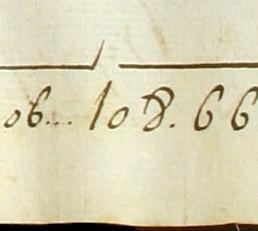 06... 108. 66